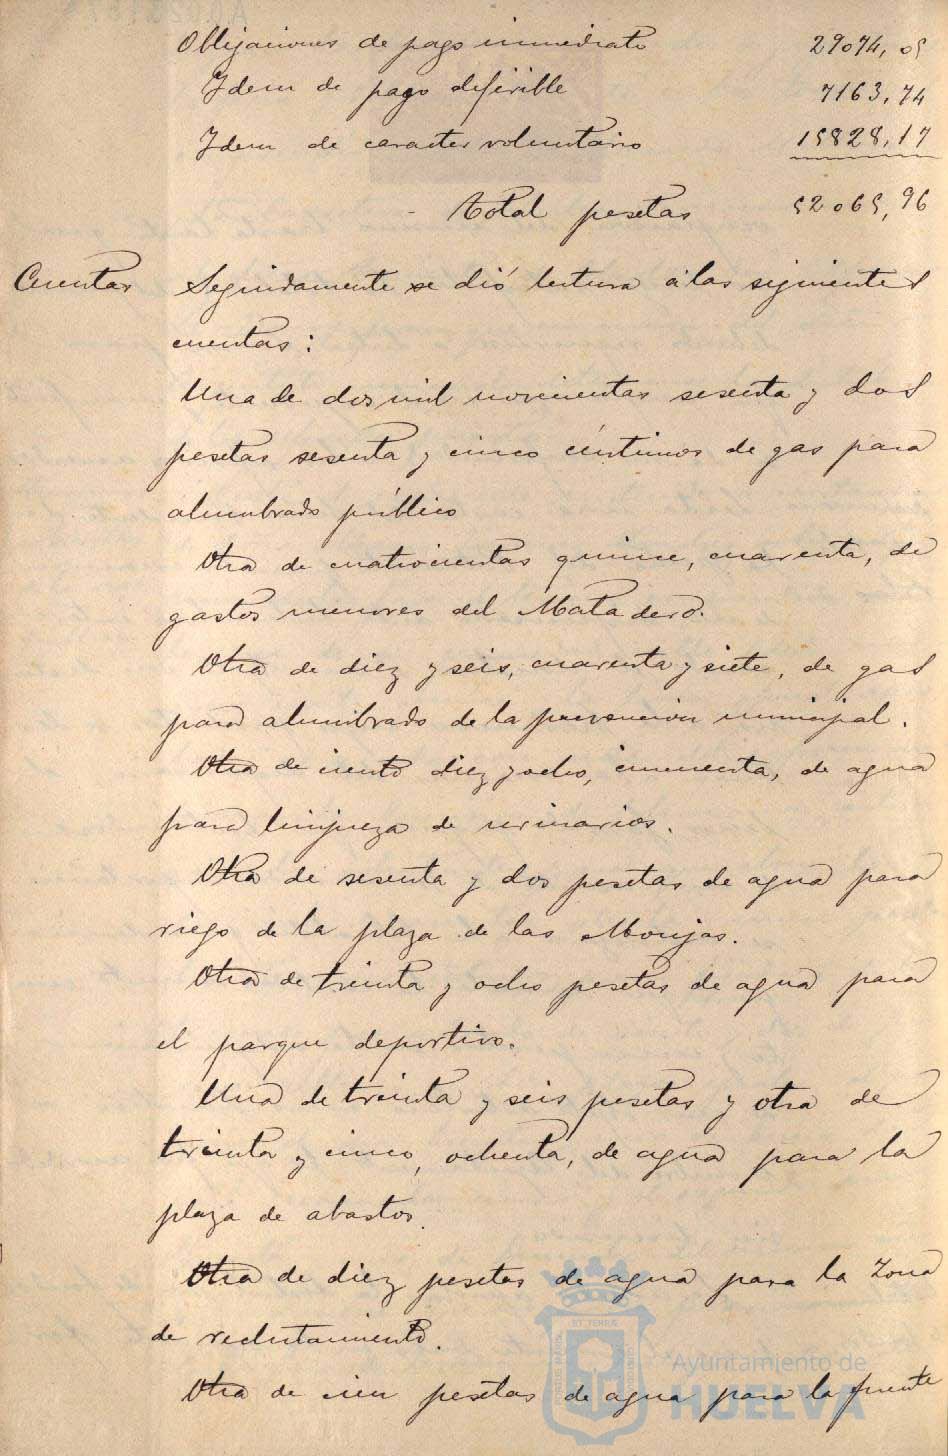 Obligaciones de pago inmediato 29074,05
Idem de pago diferible 7163,74
Idem de caracter voluntario 15828,17
Total pesetas 52065,96
Cuentas Seguidamente se dió lectura á las siguientes
cuentas:
Una de dos mil novecientas sesenta y dos
pesetas sesenta y cinco céntimos de gas para
alumbrado público
Otra de cuatrocientas quince, cuarenta, de
gastos menores del Matadero.
Otra de diez y seis, cuarenta y siete, de gas
para alumbrado de la prevencion municipal.
Otra de ciento diez y ocho, cincuenta, de agua
para limpieza de urinarios.
Otra de sesenta y dos pesetas de agua para
riego de la plaza de las Monjas.
Otra de treinta y ocho pesetas de agua para
el parque deportivo.
Una de treinta y seis pesetas y otra de
treinta y cinco, ochenta, de agua para la
plaza de abastos.
Otra de diez pesetas de agua para la Zona
de reclutamiento.
Otra de cien pesetas de agua para la fuente
Ayuntamiento de
HUELVA